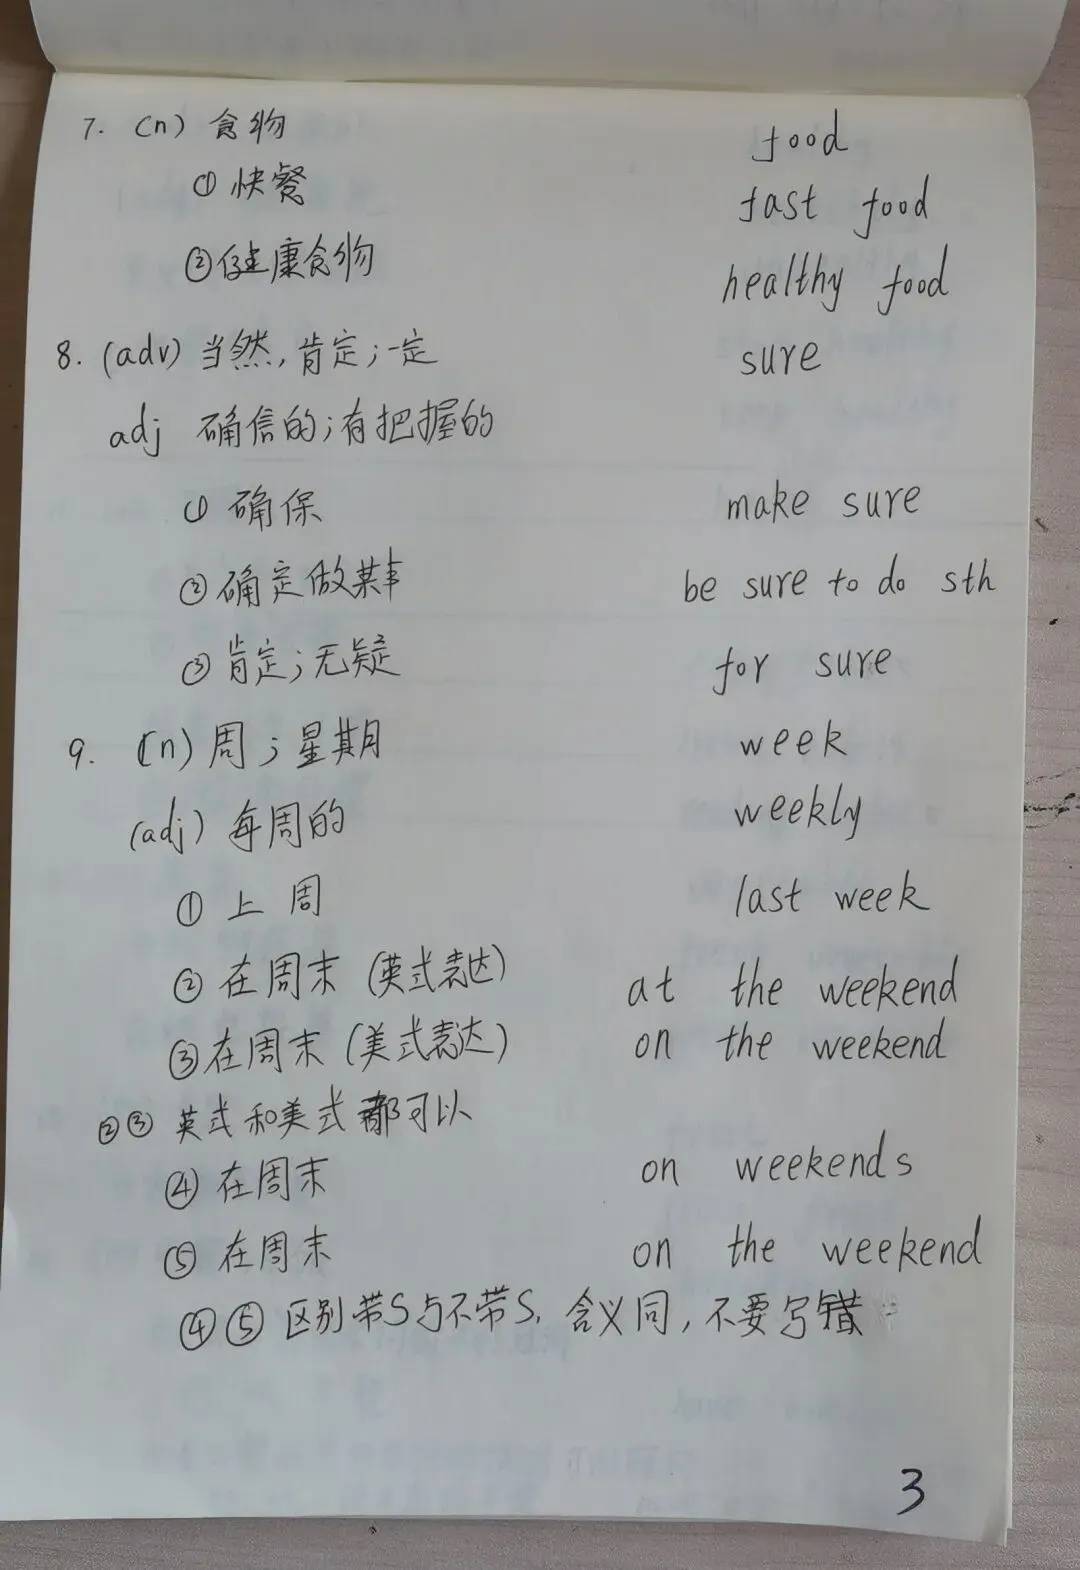 7. (n) 食物 food
① 快餐 fast food
② 健康食物 healthy food
8. (adv) 当然, 肯定; 一定 sure
adj 确信的; 有把握的
① 确保 make sure
② 确定做某事 be sure to do sth
③ 肯定; 无疑 for sure
9. (n) 周; 星期 week
(adj) 每周的 weekly
① 上周 last week
② 在周末 (英式表达) at the weekend
③ 在周末 (美式表达) on the weekend
②③ 英式和美式都可以
④ 在周末 on weekends
⑤ 在周末 on the weekend
④⑤ 区别带S与不带S, 含义同, 不要写错
3